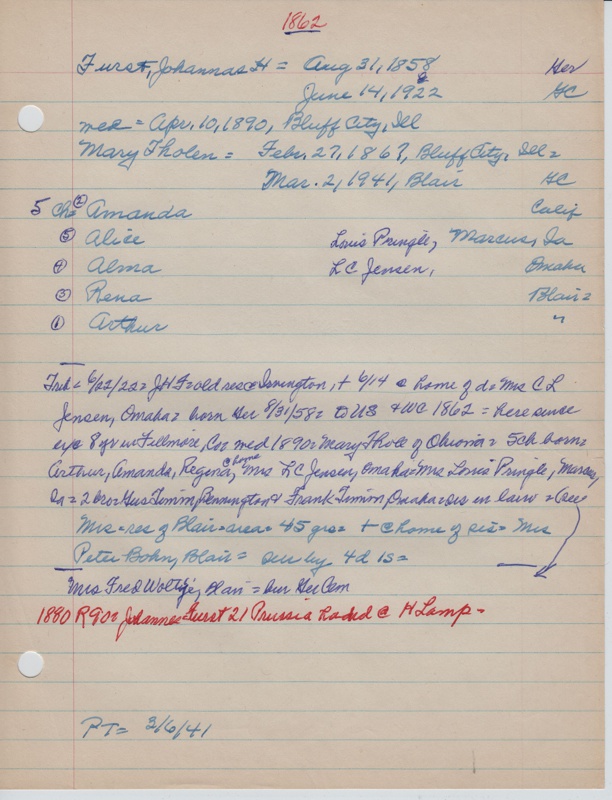 1862
Furst, Johannas H = Aug 31, 1858 Ger
June 14, 1922 HC
med = Apr. 10, 1890, Bluff City, Ill
Mary Tholen = Febr. 27, 1867, Bluff City, Ill =
Mar. 2, 1941, Blair HC
5 Ch = ② Amanda Calif
⑤ Alice Louis Pringle, Marcus, Ia
④ Alma L C Jensen, Omaha
③ Rena Blair =
① Arthur "
Trib = 6/22/22 = J H F = old res @ Irvington, + 6/14 @ home of d = Mrs C L
Jensen, Omaha = born Ger 8/31/58 = to US & WC 1862 = here since
exc 8 yrs in Fillmore, Co = med 1890 = Mary Thole of = 5 ch born =
Arthur, Amanda, @ home, Mrs L C Jensen, Omaha = Mrs Louis Pringle, Marcus,
Ia = 2 bro = Gus Timm Bennington & Frank Timm Omaha = sis in law = (see
Mrs = res of Blair = area = 45 yrs = + @ home of sis = Mrs
Peter Bohn, Blair = sur by 4 d is =
Mrs Fred , Blair = bur Ger Cem
1880 R 900 Johannes Furst 21 Prussia @ H Lamp =
PT = 3/6/41